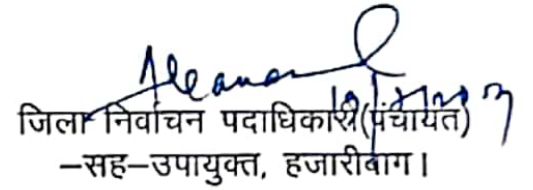 जिला निर्वाचन पदाधिकारी(पंचायत)
–सह–उपायुक्त, हजारीबाग।